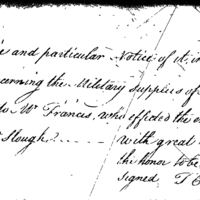 and particular Notice of it, in
cerning the Military Supplies of
to Mr Francis, who opposed the
Slough? — with great
the honor to be
Signed T